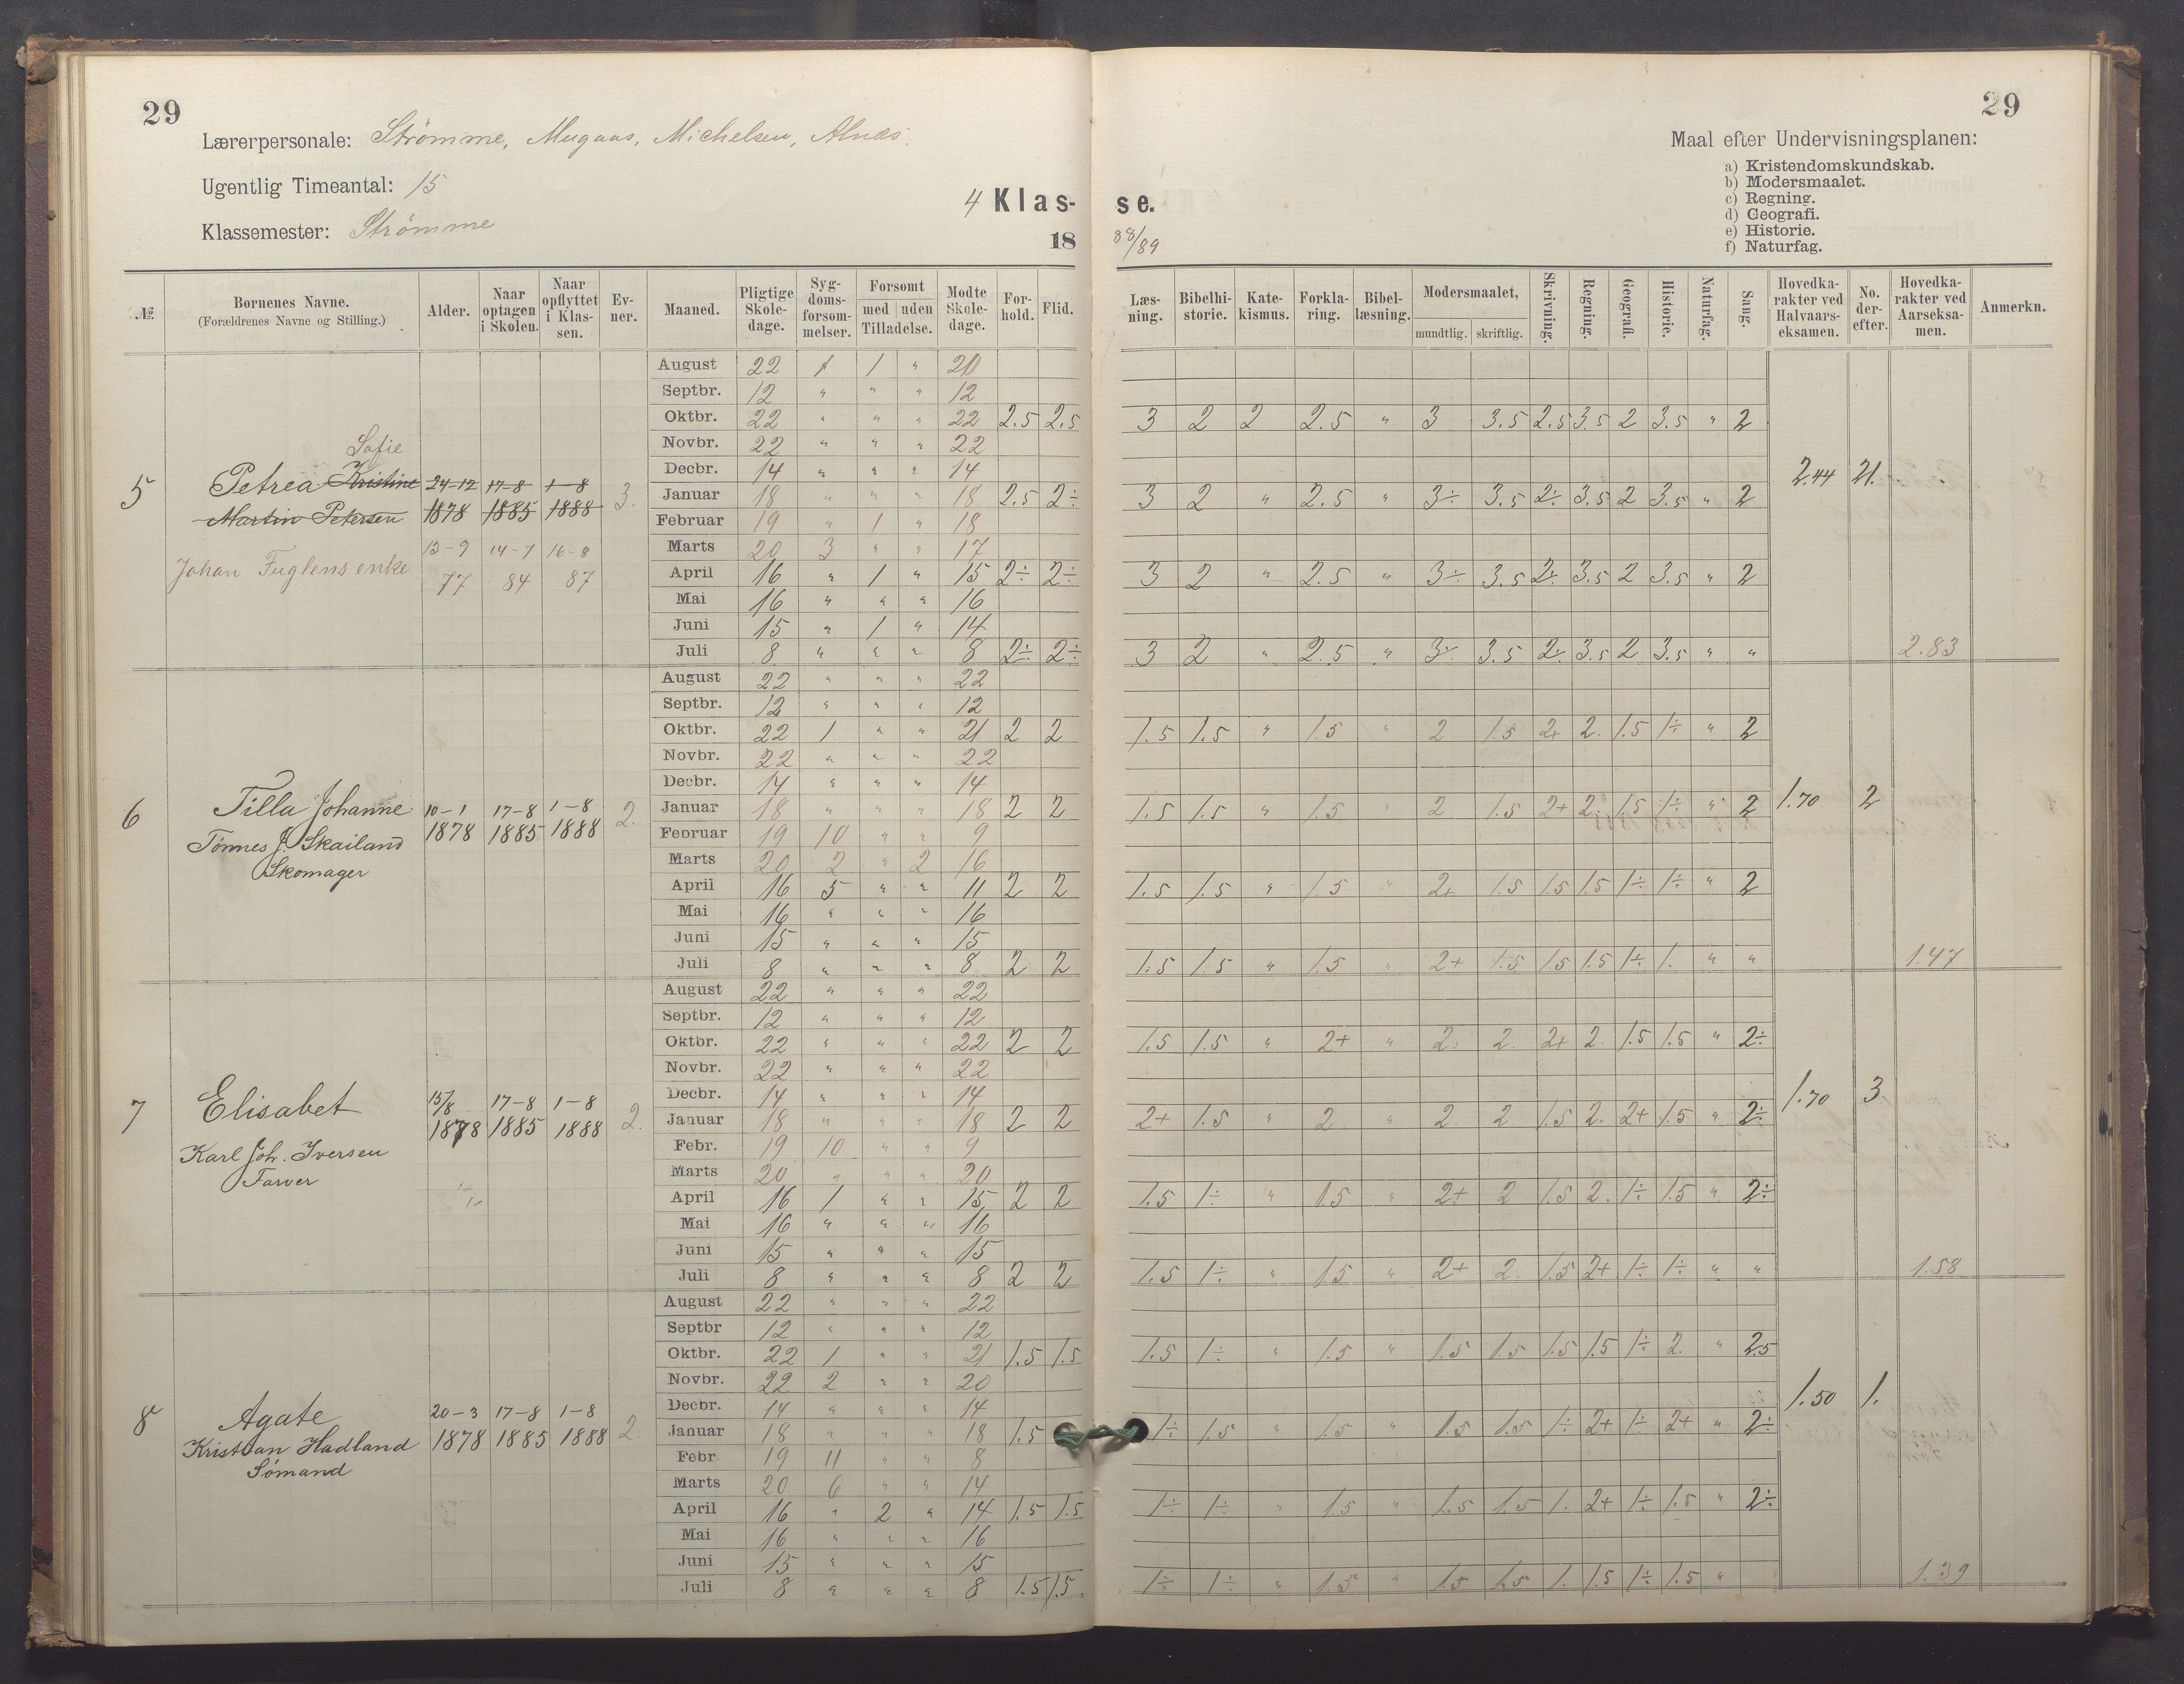 29
29
Lærerpersonale: Strömme, Mugaas, Michelsen, Alnæs.
Ugentlig Timeantal: 15
Klassemester: Strömme
4 Klas- se.
18 88/89
Maal efter Undervisningsplanen:
a) Kristendomskundskab.
b) Modersmaalet.
c) Regning.
d) Geografi.
e) Historie.
f) Naturfag.
№ Børnenes Navne. (Forældrenes Navne og Stilling.) Alder. Naar optagen i Skolen. Naar opflyttet i Klassen. Evner. Maaned. Pligtige Skoledage. Sygdomsforsømmelser. Forsømt med uden Tilladelse. Mødte Skoledage. Forhold. Flid. Læsning. Bibelhistorie. Katekismus. Forklaring. Bibellæsning. Modersmaalet, mundtlig. skriftlig. Skrivning. Regning. Geografi. Historie. Naturfag. Sang. Hovedkarakter ved Halvaarseksamen. No. derefter. Hovedkarakter ved Aarseksamen. Anmerkn.
5 Petrea Kristine Sofie
Martin Petersen
Johan Fuglens enke
24-12 1878 17-8 1885 1-8 1888 3.
13-9 77 14-7 84 16-8 87
August 22 1 1 " 20
Septbr. 12 " " " 12
Oktbr. 22 " " " 22 2.5 2.5 3 2 2 2.5 " 3 3.5 2.5 3.5 2 3.5 " 2
Novbr. 22 " " " 22
Decbr. 14 " " " 14 2.44 21.
Januar 18 " " " 18 2.5 2÷ 3 2 " 2.5 " 3÷ 3.5 2÷ 3.5 2 3.5 " 2
Februar 19 " 1 " 18
Marts 20 3 " " 17
April 16 " 1 " 15 2÷ 2÷ 3 2 " 2.5 " 3÷ 3.5 2÷ 3.5 2 3.5 " 2
Mai 16 " " " 16
Juni 15 " 1 " 14
Juli 8 " " " 8 2÷ 2÷ 3 2 " 2.5 " 3÷ 3.5 2÷ 3.5 2 3.5 " " 2.83
6 Tilla Johanne
Tönnes J. Skailand
Skomager
10-1 1878 17-8 1885 1-8 1888 2.
August 22 " " " 22
Septbr. 12 " " " 12
Oktbr. 22 1 " " 21 2 2 1.5 1.5 " 1.5 " 2 1.5 2+ 2. 1.5 1÷ " 2
Novbr. 22 " " " 22
Decbr. 14 " " " 14
Januar 18 " " " 18 2 2 1.5 1.5 " 1.5 " 2 1.5 2+ 2. 1.5 1÷ " 2 1.70 2
Februar 19 10 " " 9
Marts 20 2 " 2 16
April 16 5 " " 11 2 2 1.5 1.5 " 1.5 " 2+ 1.5 1.5 1.5 1÷ 1÷ " 2
Mai 16 " " " 16
Juni 15 " " " 15
Juli 8 " " " 8 2 2 1.5 1.5 " 1.5 " 2+ 1.5 1.5 1.5 1÷ 1. " " 1.47
7 Elisabet
Karl Joh. Iversen
Farver
15/8 1878 17-8 1885 1-8 1888 2.
August 22 " " " 22
Septbr. 12 " " " 12
Oktbr. 22 " " " 22 2 2 1.5 1.5 " 2+ " 2. 2. 2+ 2. 1.5 1.5 " 2÷
Novbr. 22 " " " 22
Decbr. 14 " " " 14 1.70 3
Januar 18 " " " 18 2 2 2+ 1.5 " 2 " 2. 2 1.5 2. 2+ 1.5 " 2÷
Febr. 19 10 " " 9
Marts 20 " " " 20
April 16 1 " " 15 2 2 1.5 1÷ " 1.5 " 2+ 2 1.5 2. 1÷ 1.5 " 2÷
Mai 16 " " " 16
Juni 15 " " " 15
Juli 8 " " " 8 2 2 1.5 1÷ " 1.5 " 2+ 2. 1.5 2+ 1÷ 1÷ " " 1.58
8 Agate
Kristian Hadland
Sömand
20-3 1878 17-8 1885 1-8 1888 2.
August 22 " " " 22
Septbr 12 " " " 12
Oktbr. 22 1 " " 21 1.5 1.5 1.5 1÷ " 1.5 " 1.5 1.5 1.5 1.5 1÷ 2. " 2.5
Novbr. 22 2 " " 20
Decbr. 14 " " " 14 1.50 1.
Januar 18 " " " 18 1.5 1÷ 1.5 " 1.5 " 1.5 1.5 1÷ 2+ 1÷ 2+ " 2÷
Febr 19 11 " " 8
Marts 20 6 " " 14
April 16 " 2 " 14 1.5 1.5 1÷ 1÷ " 1.5 " 1.5 1.5 1. 2+ 1÷ 1.5 " 2÷
Mai 16 " " " 16
Juni 15 " " " 15
Juli 8 " " " 8 1.5 1.5 1÷ 1÷ " 1.5 " 1.5 1.5 1. 1.5 1÷ 1.5 " 1.39